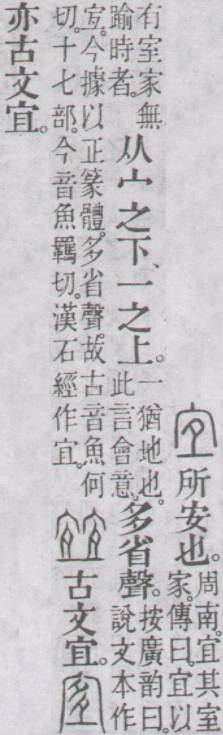 宜所安也。周南宜其室
家。傳曰。宜以
有室家無
踰時者。
从宀之下、一之上。
一猶地也。
此言會意。
多省聲。
按廣韵曰。
說文本作
宐。今據以正篆體。多省聲。故古音魚何
切。十七部。今音魚羈切。漢石經作宜。
古文宜。
亦古文宜。